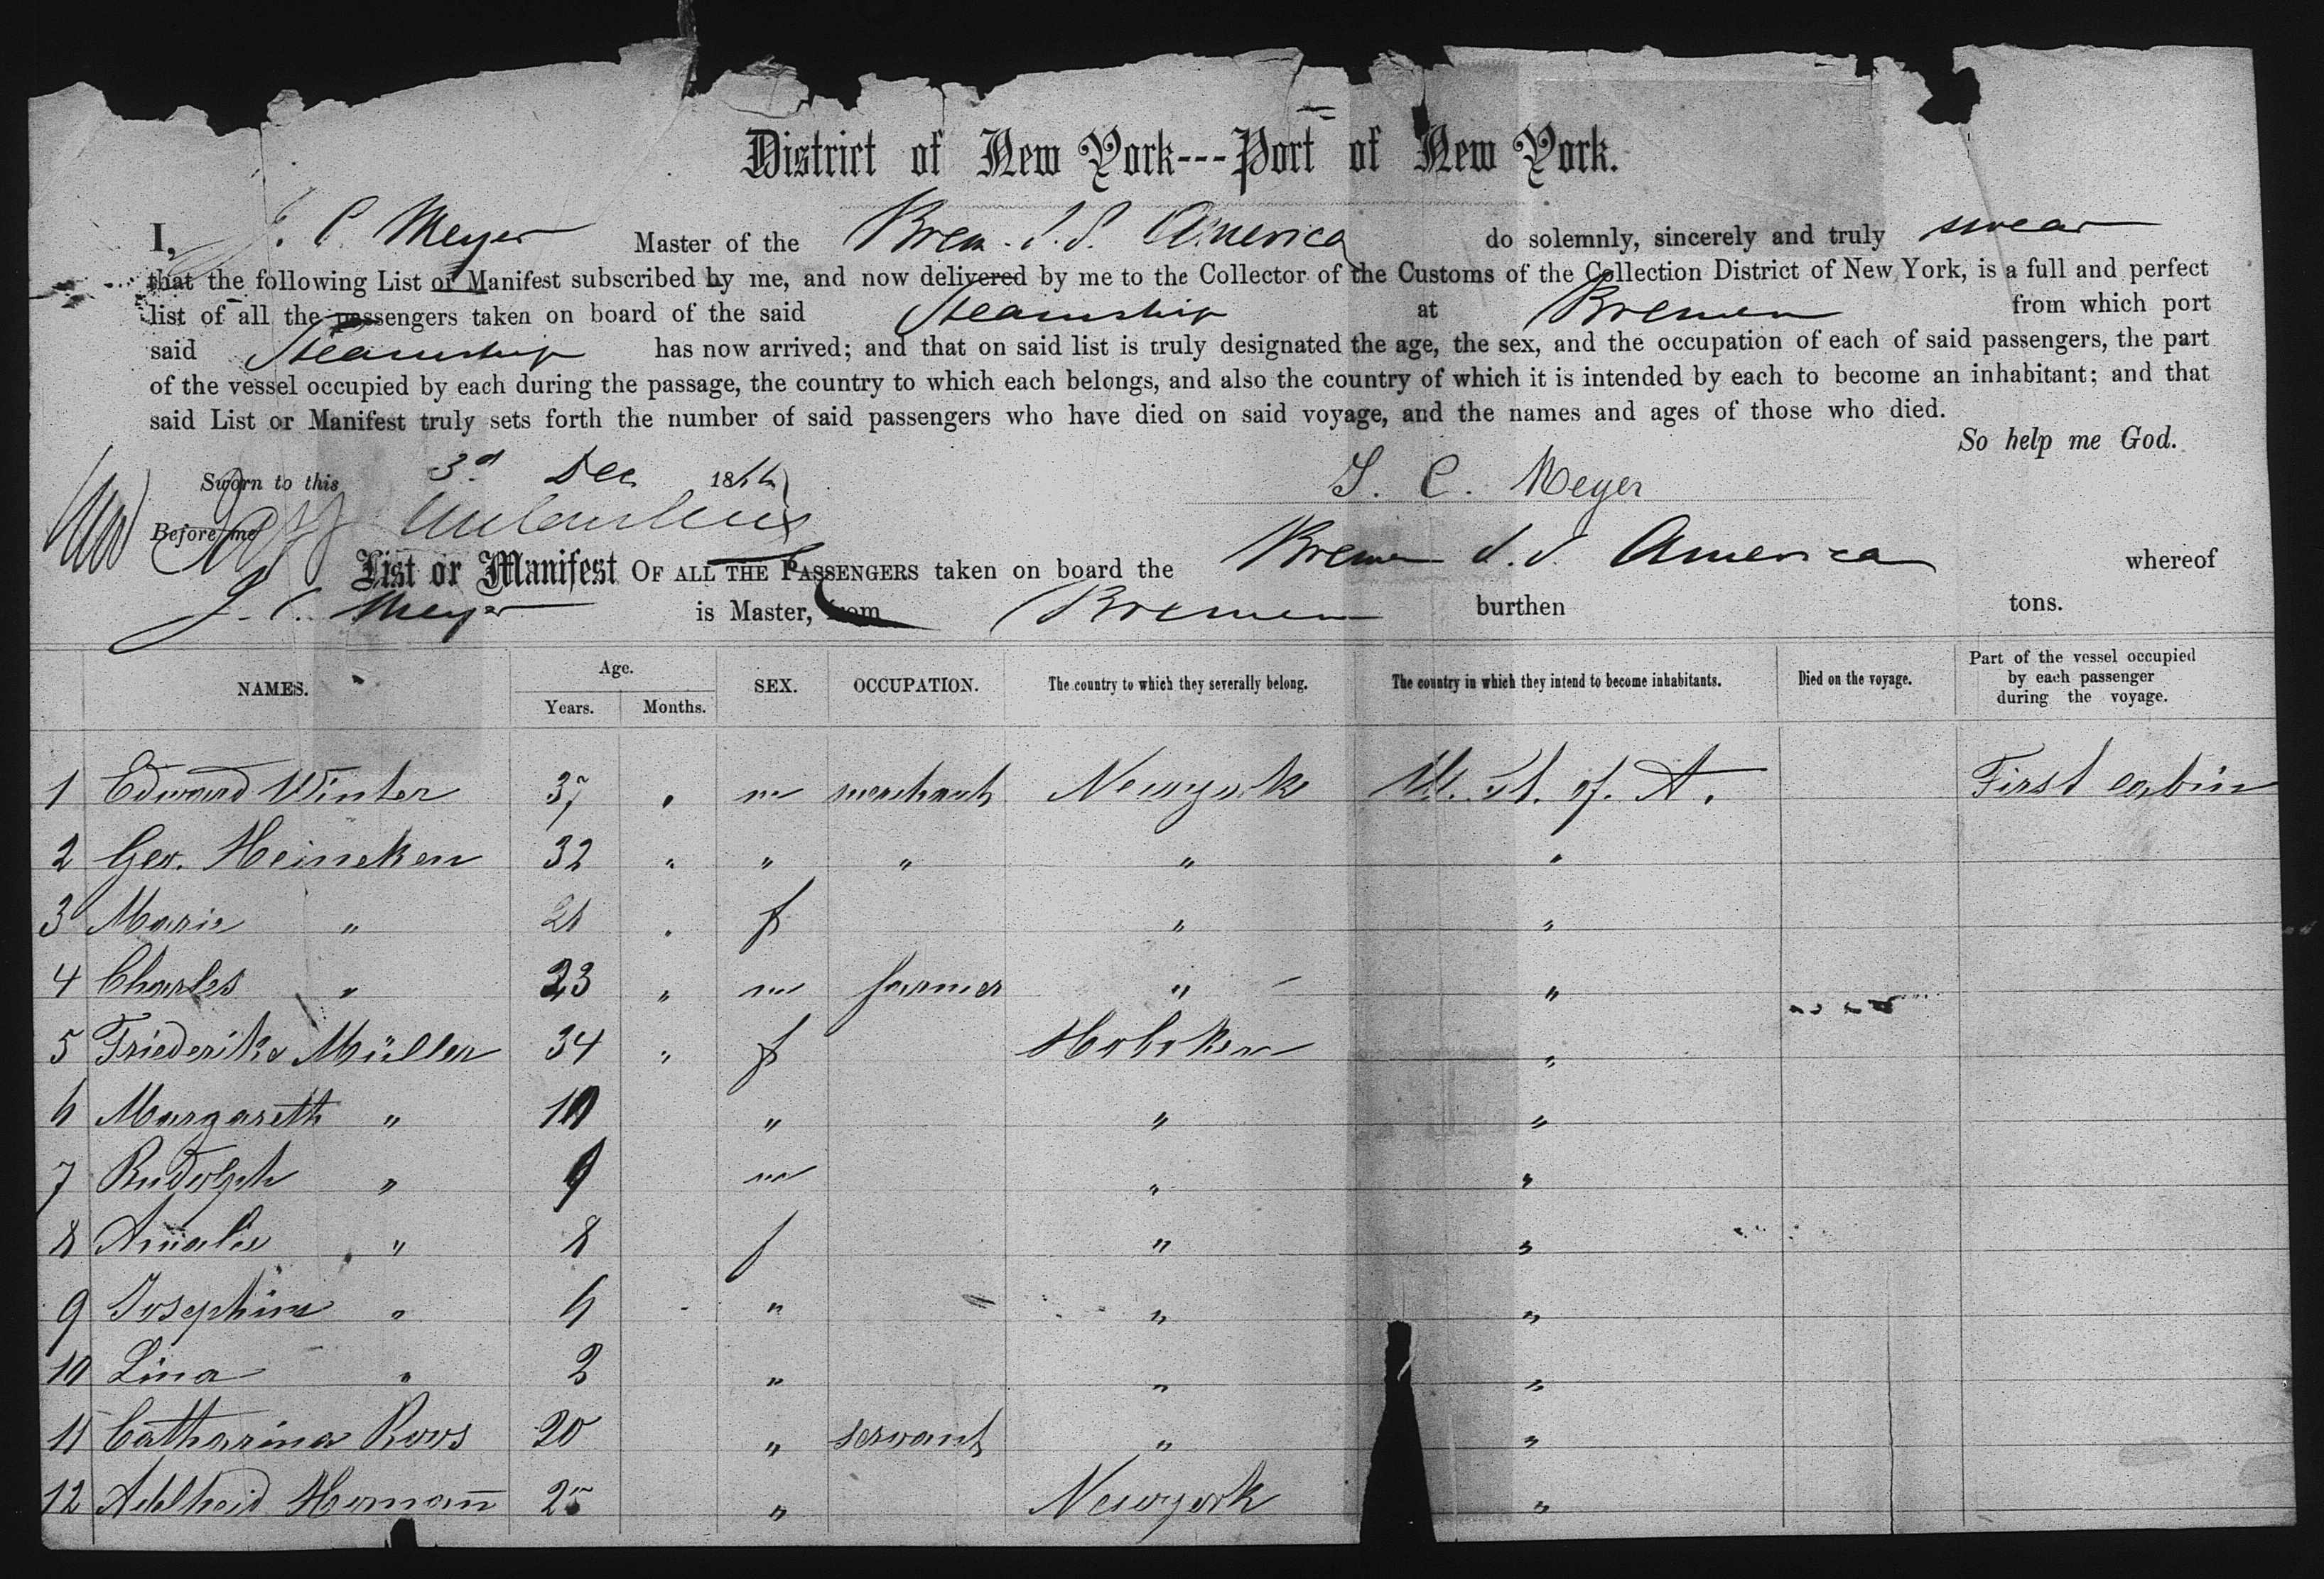 District of New York---Port of New York.
I, J. C. Meyer Master of the Brem. S.S. America do solemnly, sincerely and truly swear
that the following List or Manifest subscribed by me, and now delivered by me to the Collector of the Customs of the Collection District of New York, is a full and perfect
list of all the passengers taken on board of the said Steamship at Bremen from which port
said Steamship has now arrived; and that on said list is truly designated the age, the sex, and the occupation of each of said passengers, the part
of the vessel occupied by each during the passage, the country to which each belongs, and also the country of which it is intended by each to become an inhabitant; and that
said List or Manifest truly sets forth the number of said passengers who have died on said voyage, and the names and ages of those who died.
So help me God.
Sworn to this 3d Dec 1866
J. C. Meyer
Before me
List or Manifest OF ALL THE PASSENGERS taken on board the Bremen S.S. America whereof
J. C. Meyer is Master, from Bremen burthen tons.
NAMES. Age. Years. Months. SEX. OCCUPATION. The country to which they severally belong. The country in which they intend to become inhabitants. Died on the voyage. Part of the vessel occupied by each passenger during the voyage.
1 Edward Winter 37 " m merchant Newyork U. St. of A. First cabin
2 Geo. Heineken 32 " " " " "
3 Marie " 28 " f " "
4 Charles " 23 " m farmer " "
5 Friederike Müller 34 " f Hoboken "
6 Margareth " 10 " " "
7 Rudolph " 9 m " "
8 Amalie " 8 f " "
9 Josephine " 6 " " "
10 Lina " 2 " " "
11 Catharina Roos 20 " servant " "
12 Adelheid Homann̄ 25 " Newyork "